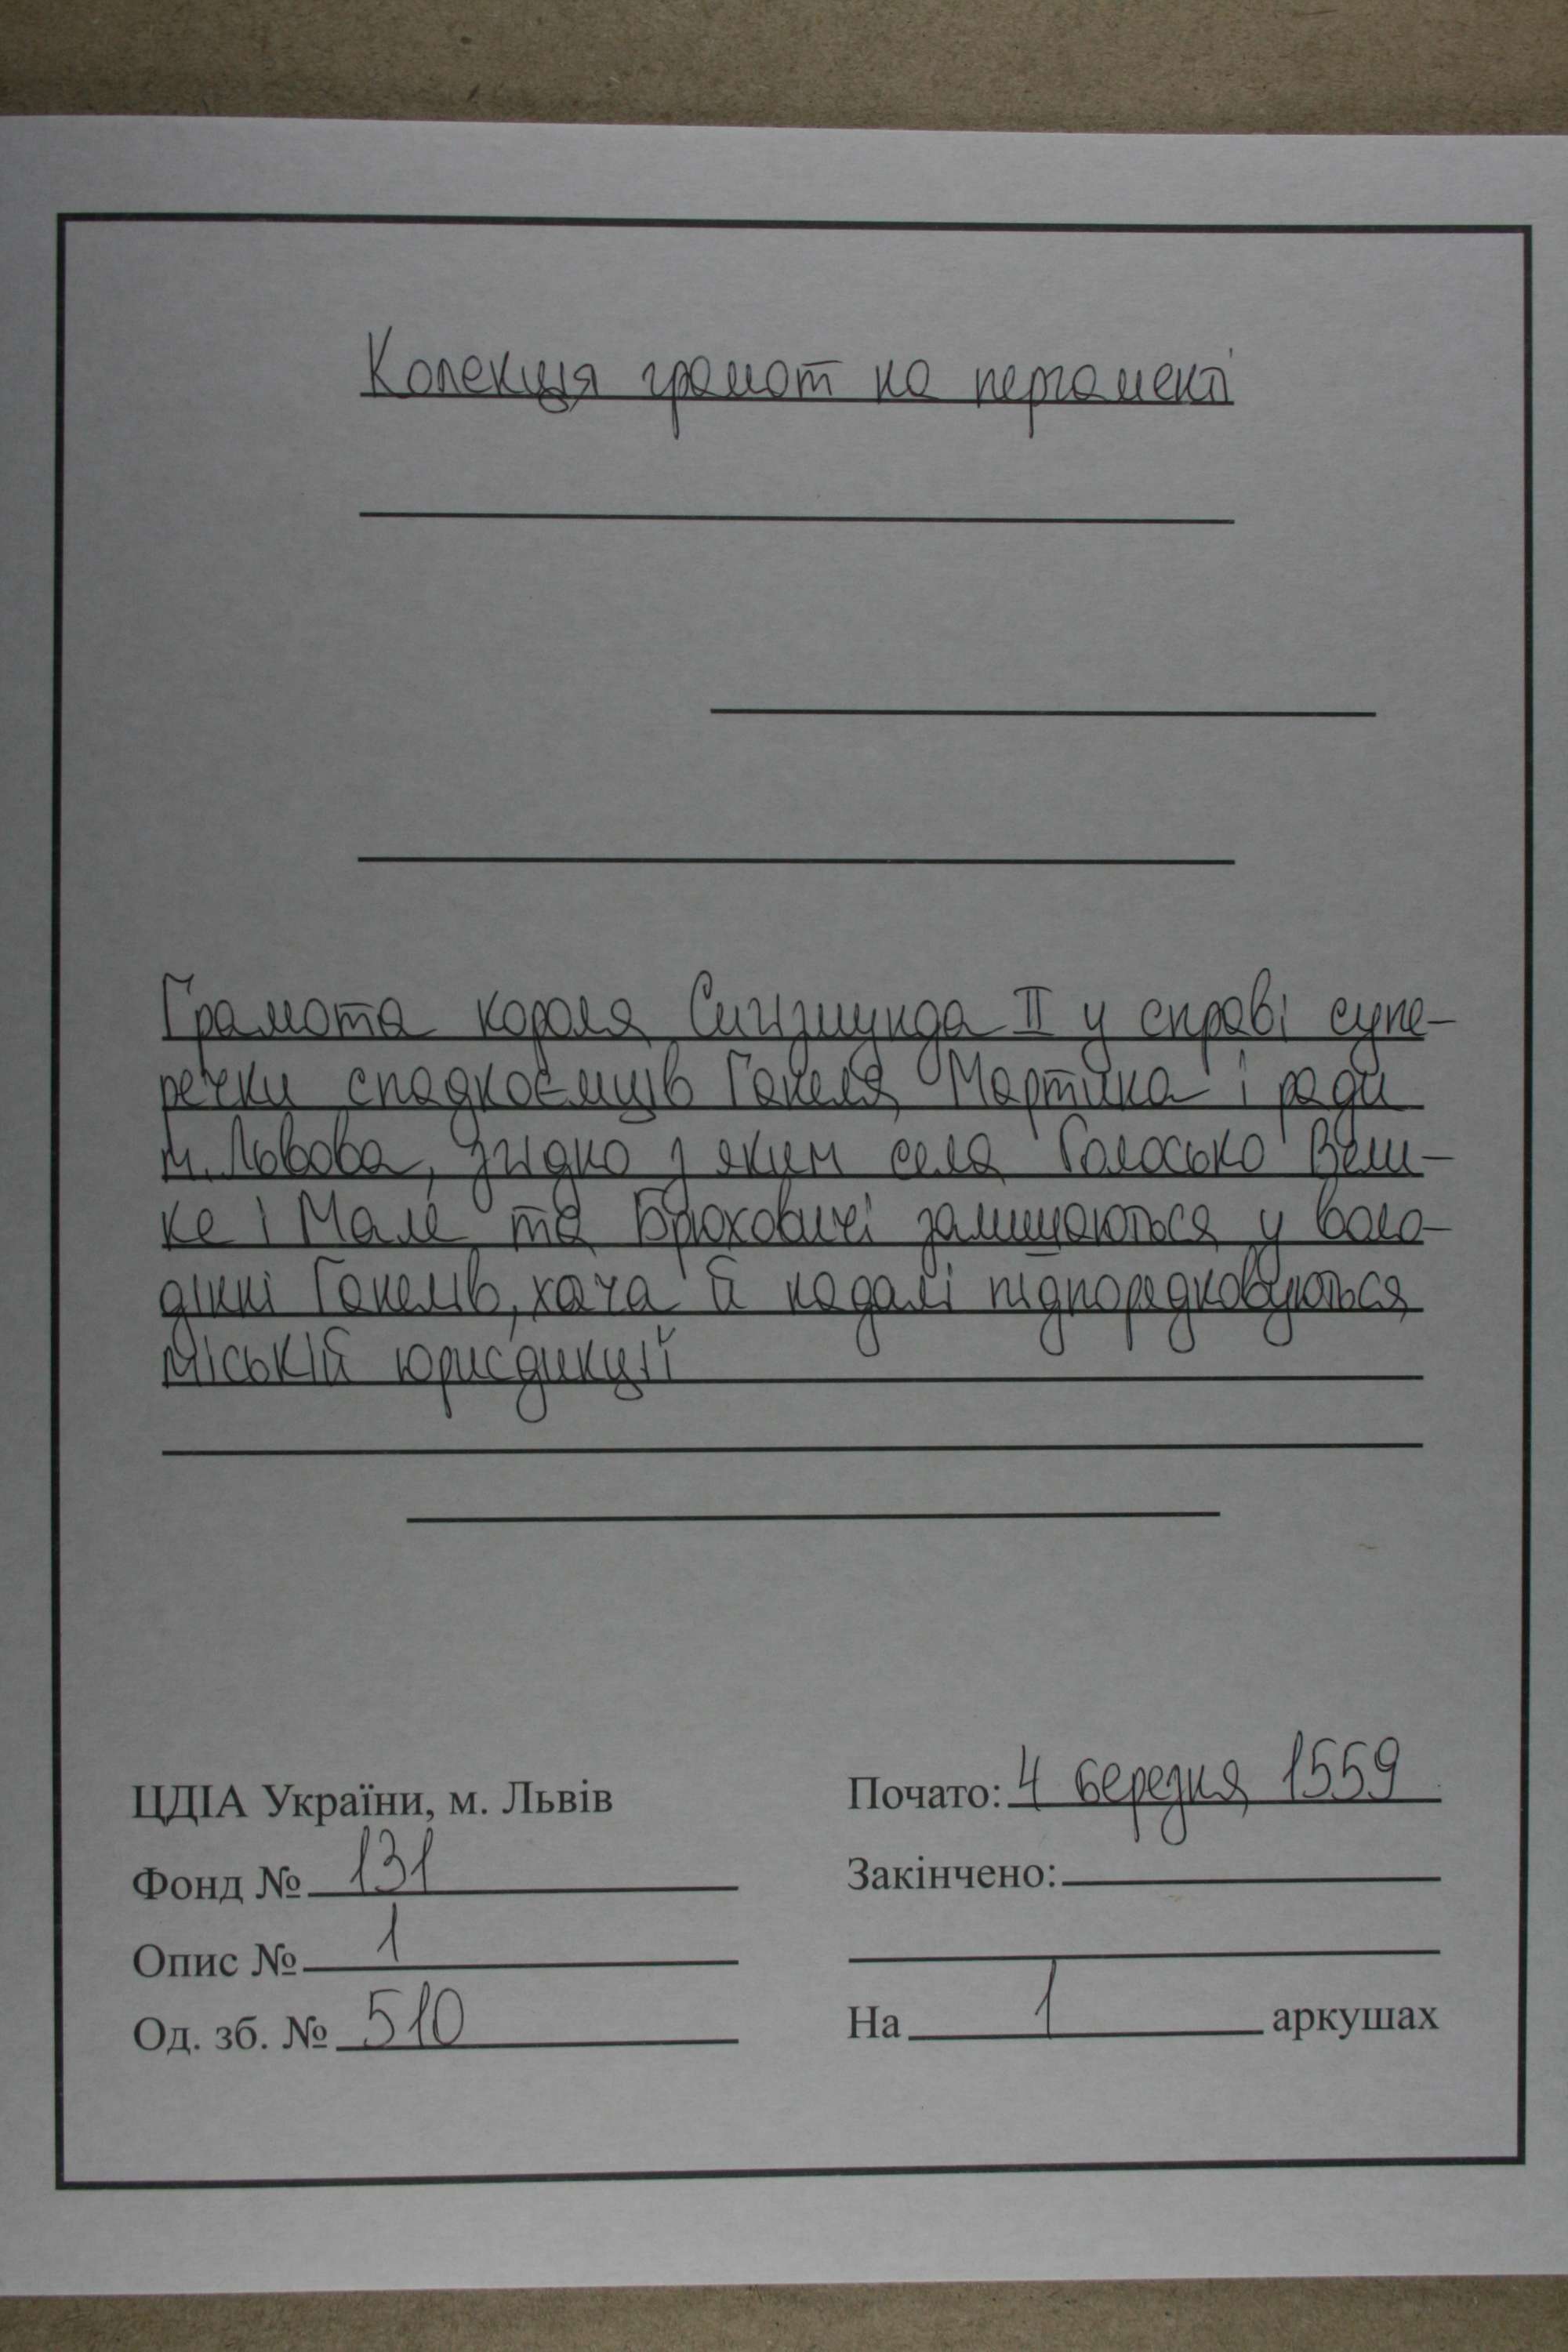 Колекція грамот на пергаменті
Грамота короля Сигізмунда II у справі супе-
речки спадкоємців Ганеля Мартина і ради
м. Львова, згідно з яким села Голосько Вели-
ке і Мале та Брюховичі залишаються у воло-
дінні Ганелів, хоча й надалі підпорядковуються
міській юрисдикції
ЦДІА України, м. Львів
Фонд № 131
Опис № 1
Од. зб. № 510
Почато: 4 березня 1559
Закінчено:
На 1 аркушах